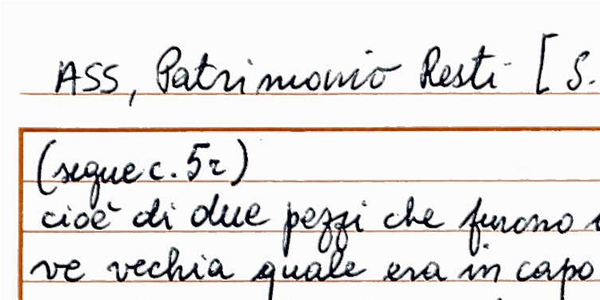 ASS, Patrimonio Resti [S.
(segue c. 5r)
cioè di due pezzi che furono
ve vechia quale era in capo